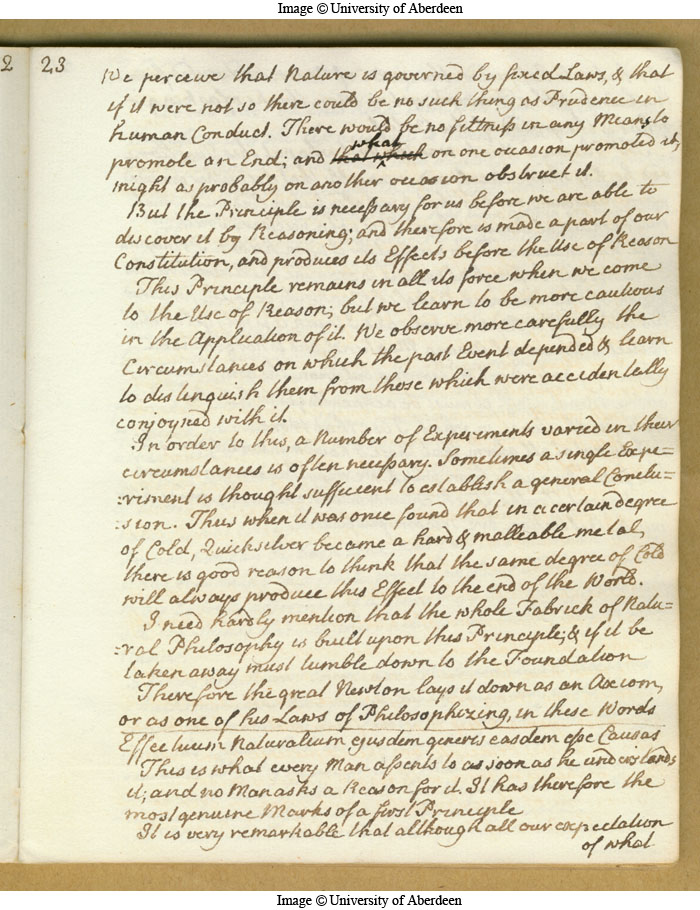 Image © University of Aberdeen
2 23
We perceive that Nature is governed by fixed Laws, & that
if it were not so there could be no such thing as Prudence in
human Conduct. There would be no fittness in any Means to
promote an End; and that which what on one occasion promoted it,
might as probably on another occasion obstruct it.
But the Principle is necessary for us before we are able to
discover it by Reasoning; and therefore is made a part of our
Constitution, and produces its Effects before the Use of Reason
This Principle remains in all its force when we come
to the Use of Reason; but we learn to be more cautious
in the Application of it. We observe more carefully the
Circumstances on which the past Event depended & learn
to distinguish them from those which were accidentally
conjoyned with it.
In order to this, a Number of Experiments varied in their
circumstances is often necessary. Sometimes a single Expe=
:riment is thought sufficient to establish a general Conclu=
:sion. Thus when it was once found that in a certain degree
of Cold, Quicksilver became a hard & malleable metal,
there is good reason to think that the same degree of Cold
will always produce this Effect to the end of the World.
I need hardly mention that the whole Fabrick of Natu=
:ral Philosophy is built upon this Principle; & if it be
taken away must tumble down to the Foundation
Therefore the great Newton lays it down as an Axiom,
or as one of his Laws of Philosophizing, in these Words
Effectuum Naturalium ejusdem generis easdem esse Causas
This is what every Man assents to as soon as he understands
it; and no Man asks a Reason for it. It has therefore the
most genuine Marks of a first Principle
It is very remarkable that although all our expectation
of what
Image © University of Aberdeen